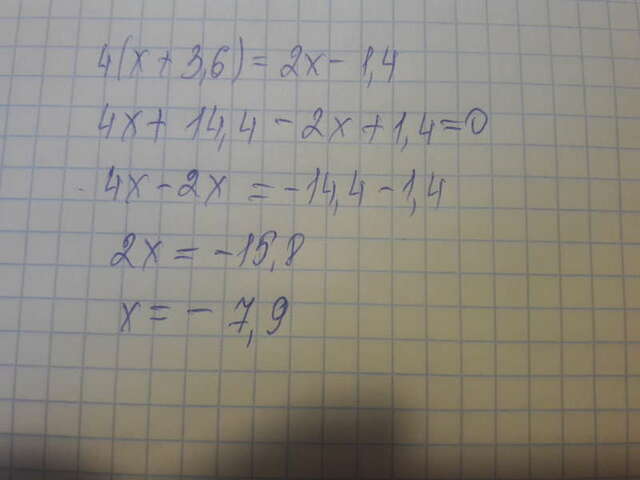 4(x+3,6)=2x-1,4
4x+14,4-2x+1,4=0
4x-2x=-14,4-1,4
2x=-15,8
x=-7,9